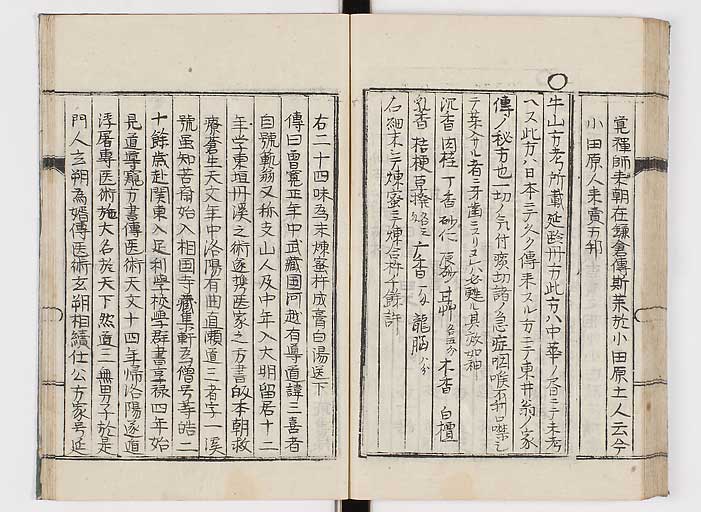 覚禅師来朝在鎌倉傳斯葉於小田原土人云今
小田原人来賣五邦
牛山方考所載延齢丹方此方ハ中華ノ方ニテ未考
ヘス此方ハ日本ニテ久ク傳来スル方ニテ東井翁ノ家
傳ノ秘方也一切ノ気付霍乱諸ノ急症咽喉不利口噤シ
テ葉分ル者ニ牙歯ニスリヌレハ必甦ル其效如神
沉香 肉桂 丁香 砂仁 木香 白檀
乳香 桔梗 丁香 龍脳
右細末ニテ煉蜜ニテ煉合杵千餘許
右二十四味為末煉蜜杵成膏白湯送下
傳曰曽寛正年中武藏國河越有導道諱三喜者
自號範翁又称支山人及中年入大明留居十二
年学東垣丹溪之術遂携医家之方書皈本朝救
療蒼生天文年中洛陽有曲直瀬道三者字一溪
號盍知苦斎始入相国寺藏集軒為僧号等皓二
十餘歳赴関東入足利学校学群書享禄四年始
見道導窺方書傳医術天文十四年帰洛陽遂道
浮屠專医術施大名於天下然道三無男子於是
門人玄朔為婿傳医術玄朔相續仕公方家号延